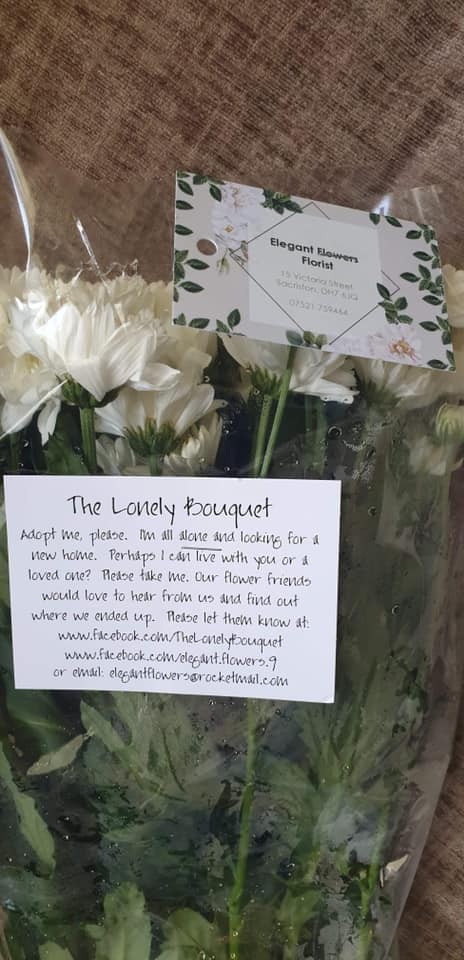 Elegant Flowers
Florist
15 Victoria Street
Sacriston, DH7 6JQ
07521 759464
The Lonely Bouquet
Adopt me, please. I'm all alone and looking for a
new home. Perhaps I can live with you or a
loved one? Please take me. Our flower friends
would love to hear from us and find out
where we ended up. Please let them know at:
www.facebook.com/TheLonelyBouquet
www.facebook.com/elegant.flowers.9
or email: elegantflowers@rocketmail.com